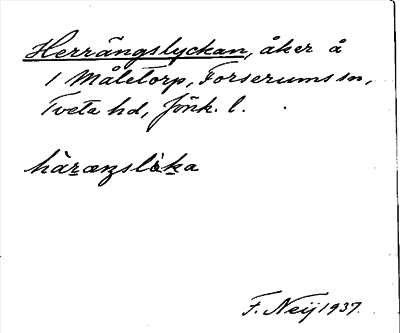 Herrängslyckan, åker å
1 Måletorp, Forserums sn,
Tveta hd, Jönk. l.
häraŋslika
F. Neij 1937.